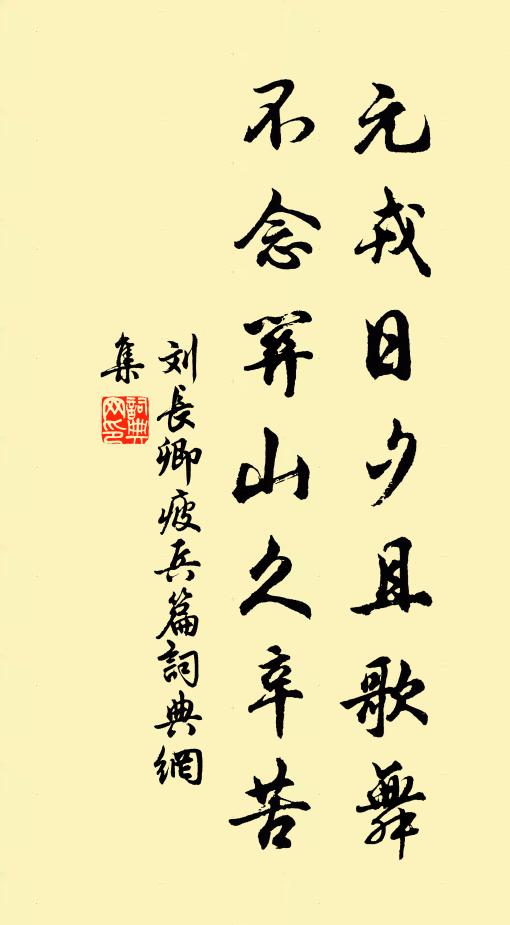 元戎日夕且歌舞
不念關山久辛苦
刘長卿疲兵篇詞典網
集
詞典網印